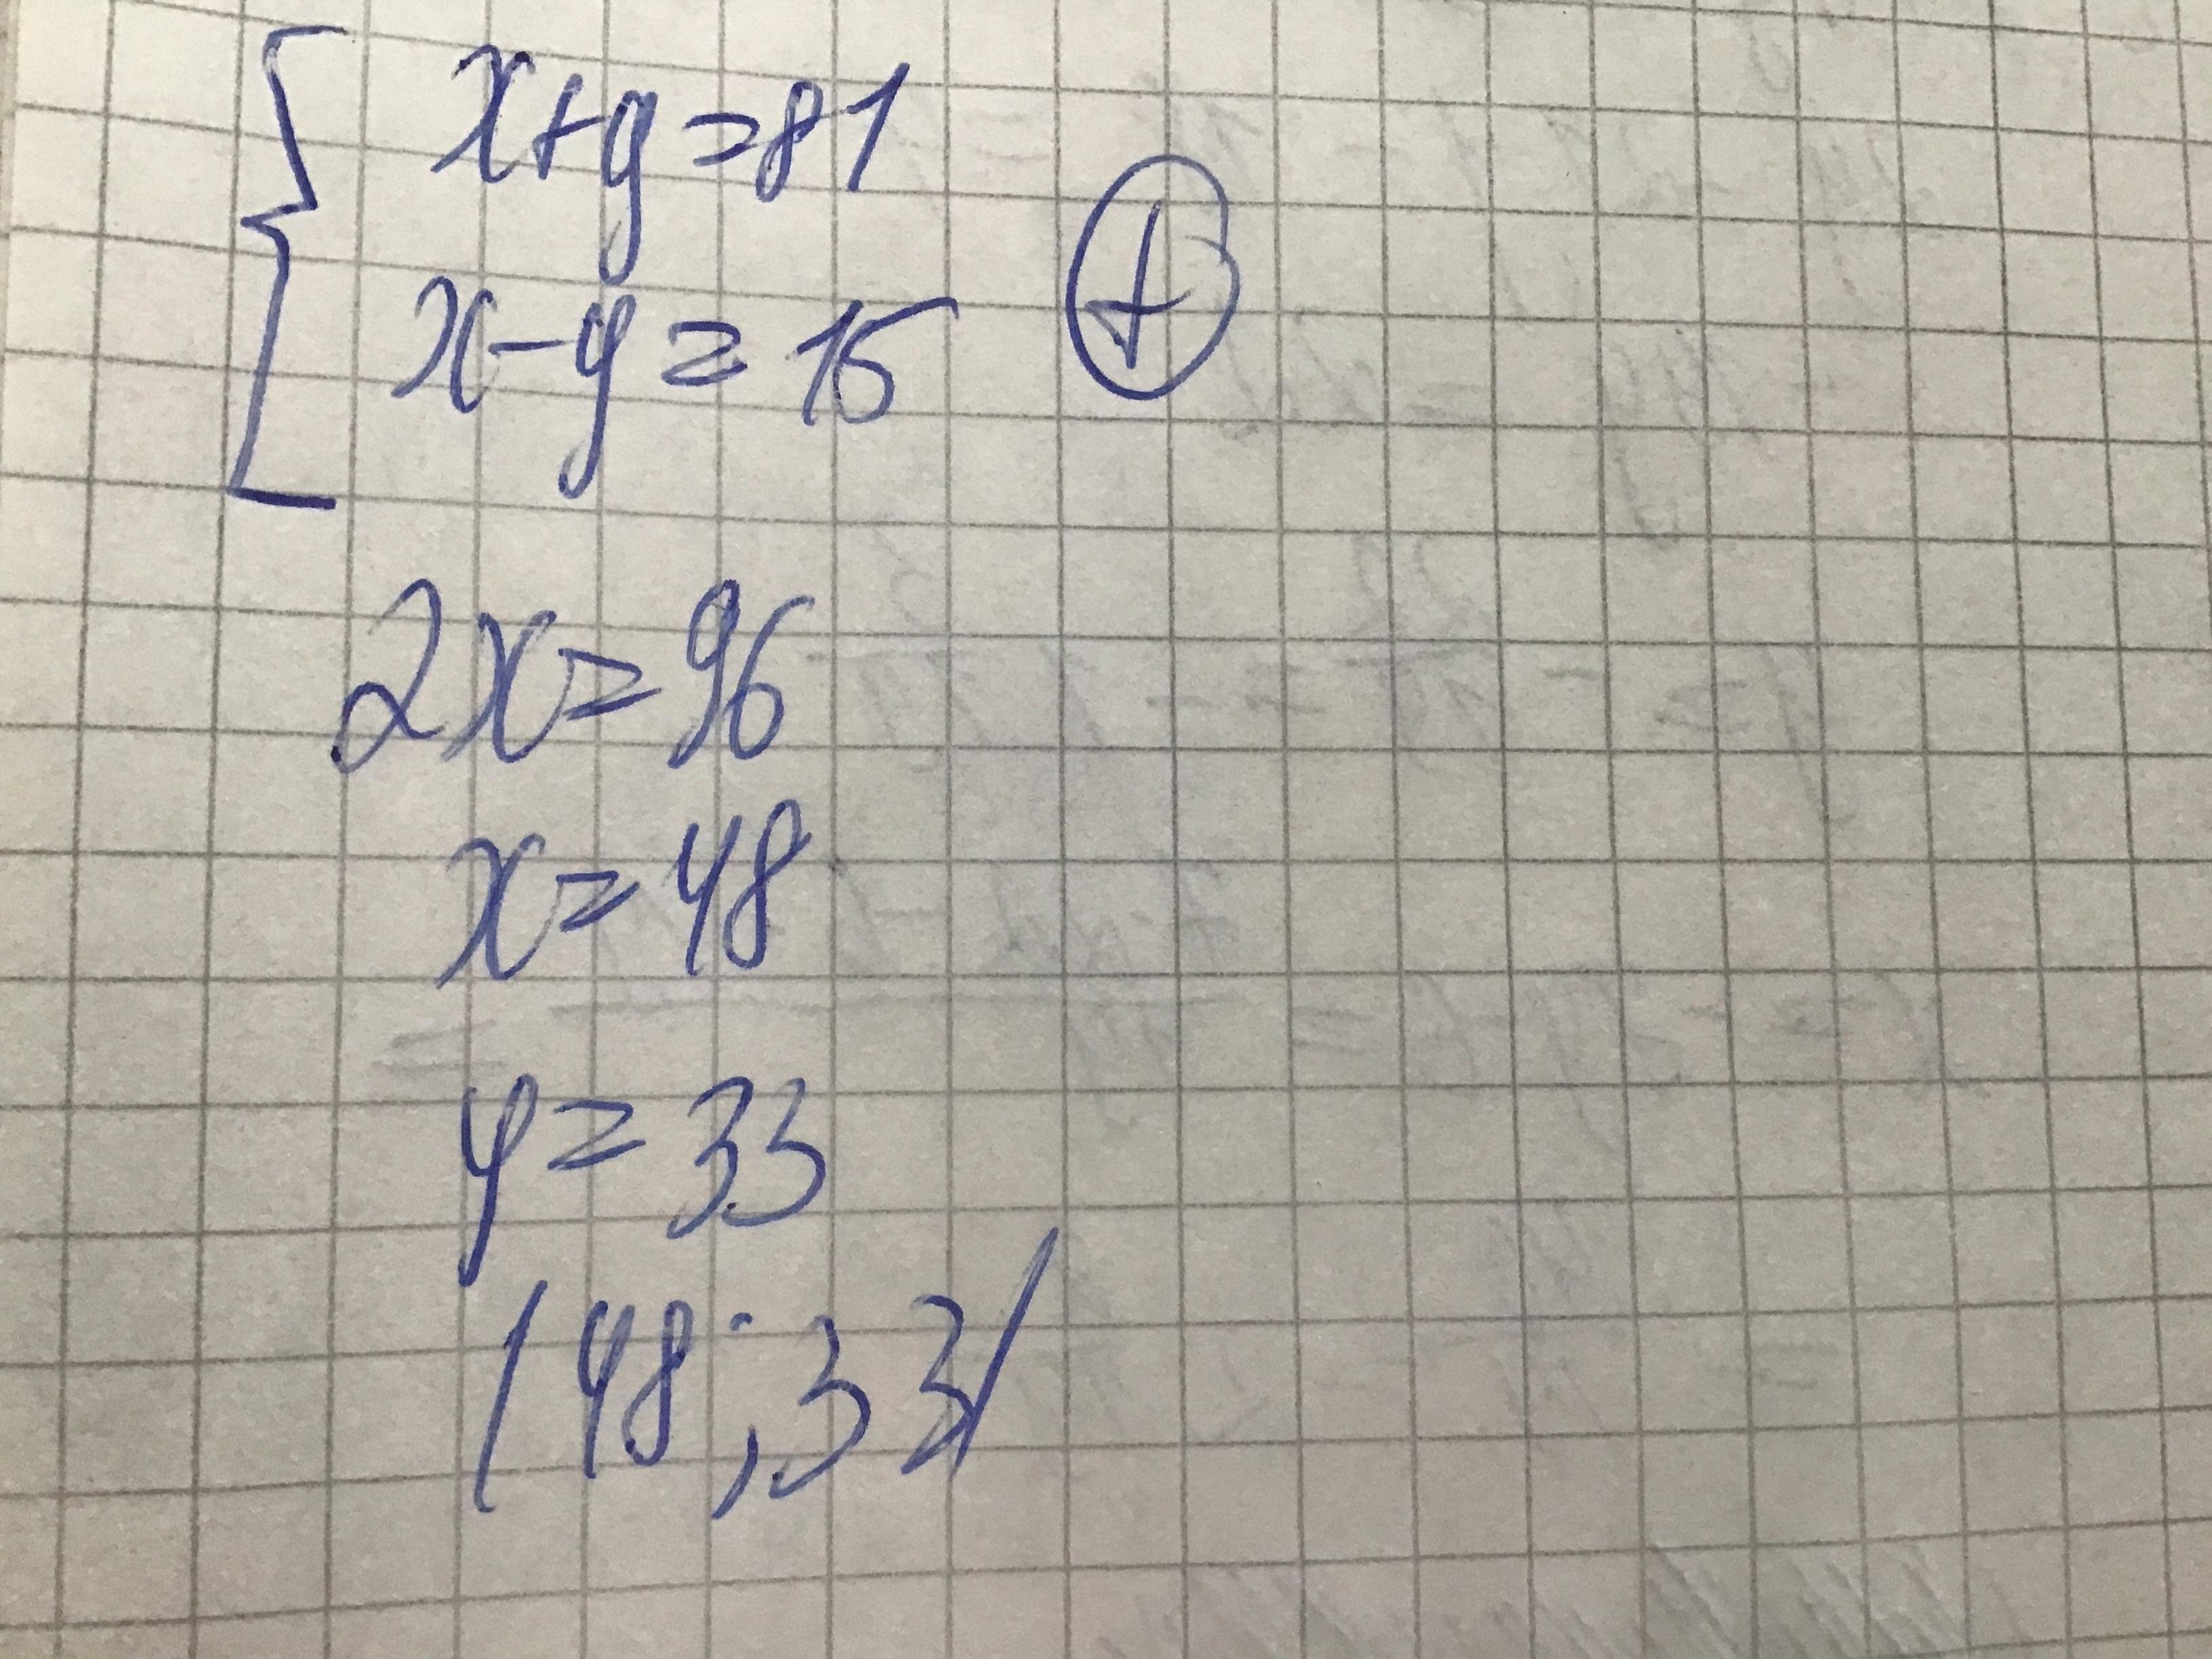 x+y=81
x-y=15
+
2x=96
x=48
y=33
(48;33)